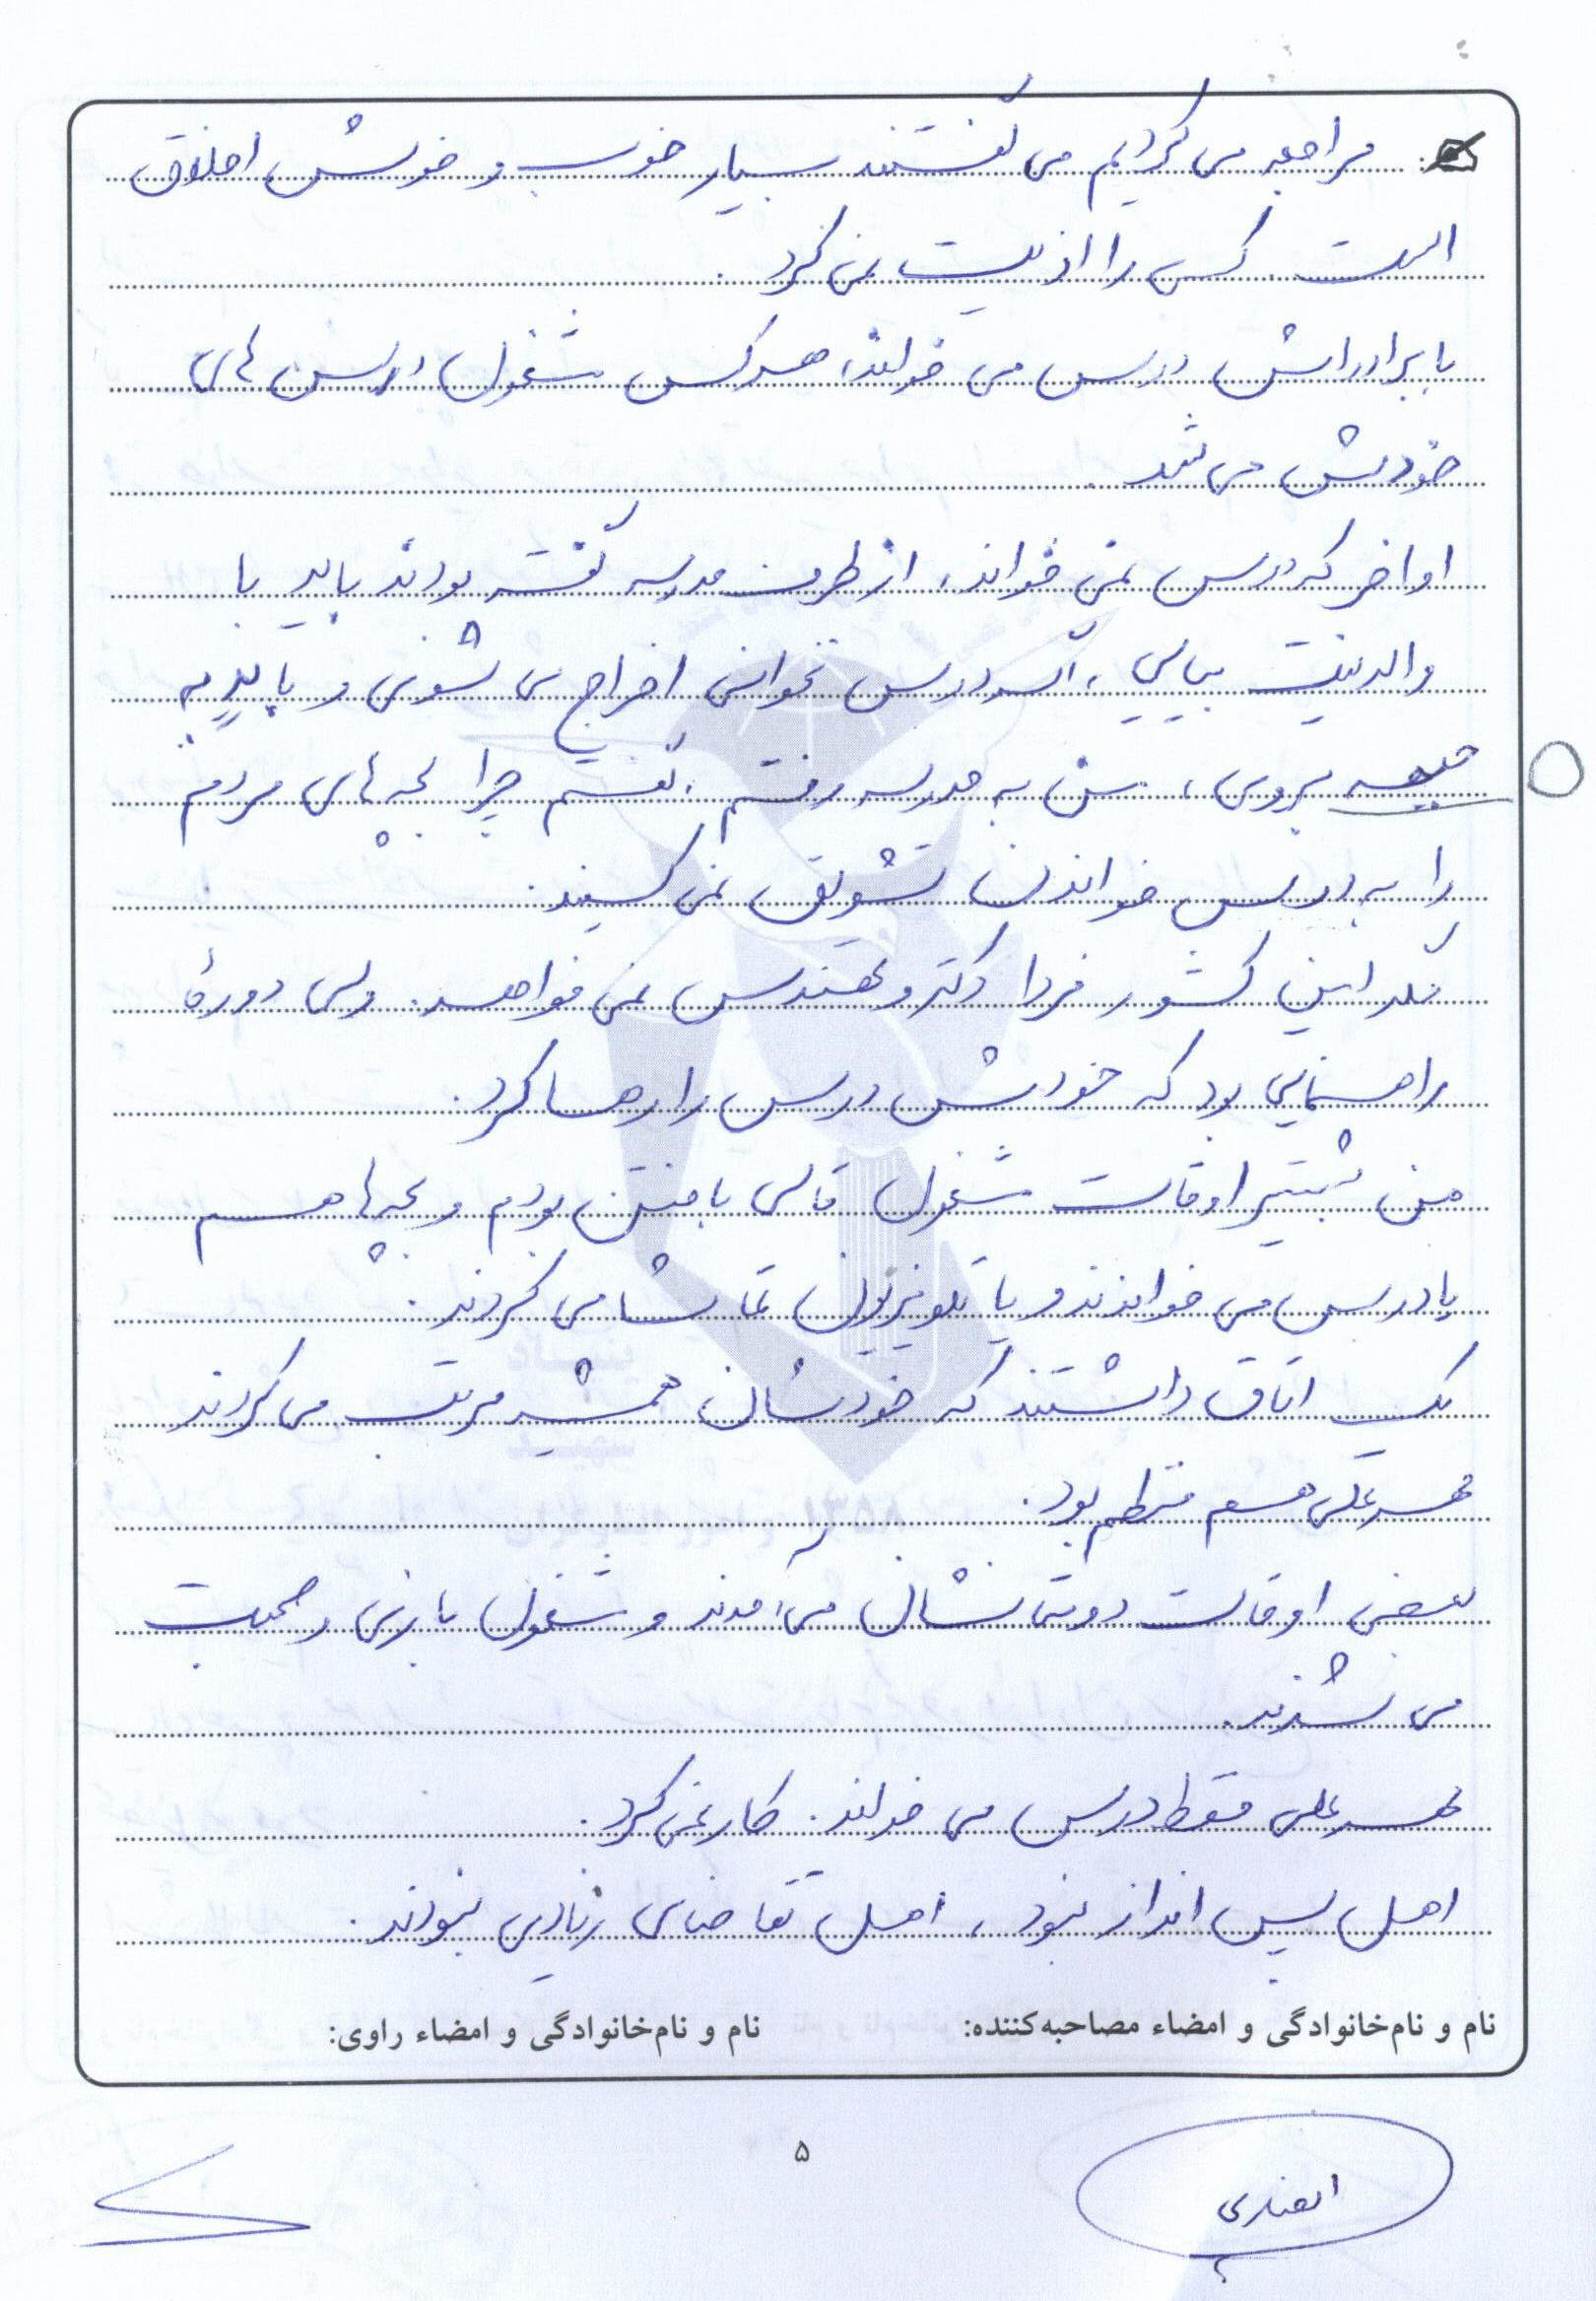 مراجعه می کردیم می گفتند بسیار خوب و خوش اخلاق
است. کسی را اذیت نمی کرد.
با برادرانش درس می خواند، هرکس مشغول درس های
خودش می شد.
اواخر که درس نمی خواند، از طرف مدرسه گفته بودند باید با
والدینت بیایی، اگر درس نخوانی اخراج می شوی و باید به
جبهه بروی، من به مدرسه رفتم، گفتم چرا بچه های مردم
را به درس خواندن تشویق نمی کنید.
مگر این کشور فردا دکتر و مهندس نمی خواهد. ولی دورهٔ
راهنمایی بود که خودش درس را رها کرد.
من بیشتر اوقات مشغول قالی بافتن بودم و بچه ها هم
یا درس می خواندند و یا تلویزیون تماشا می کردند.
یک اتاق داشتند که خودشان همیشه مرتب می کردند
مهرعلی هم منظم بود.
بعضی اوقات دوستانشان می آمدند و مشغول بازی و صحبت
می شدند.
مهرعلی فقط درس می خواند. کار نمی کرد.
اهل پس انداز نبود، اهل تقاضای زیادی نبودند.
نام و نام‌خانوادگی و امضاء مصاحبه‌کننده: نام و نام‌خانوادگی و امضاء راوی:
۵